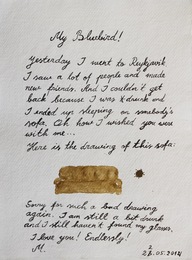 My Bluebird!
Yesterday I went to Reykjavik
I saw a lot of people and made
new friends. And I couldn't get
back because I was drunk and
I ended up sleeping on somebody's
sofa. Oh how I wished you were
with me...
Here is the drawing of this sofa:
Sorry for such a bad drawing
again. I am still a bit drunk
and I still haven't found my glasses.
I love you! Endlessly!
M.